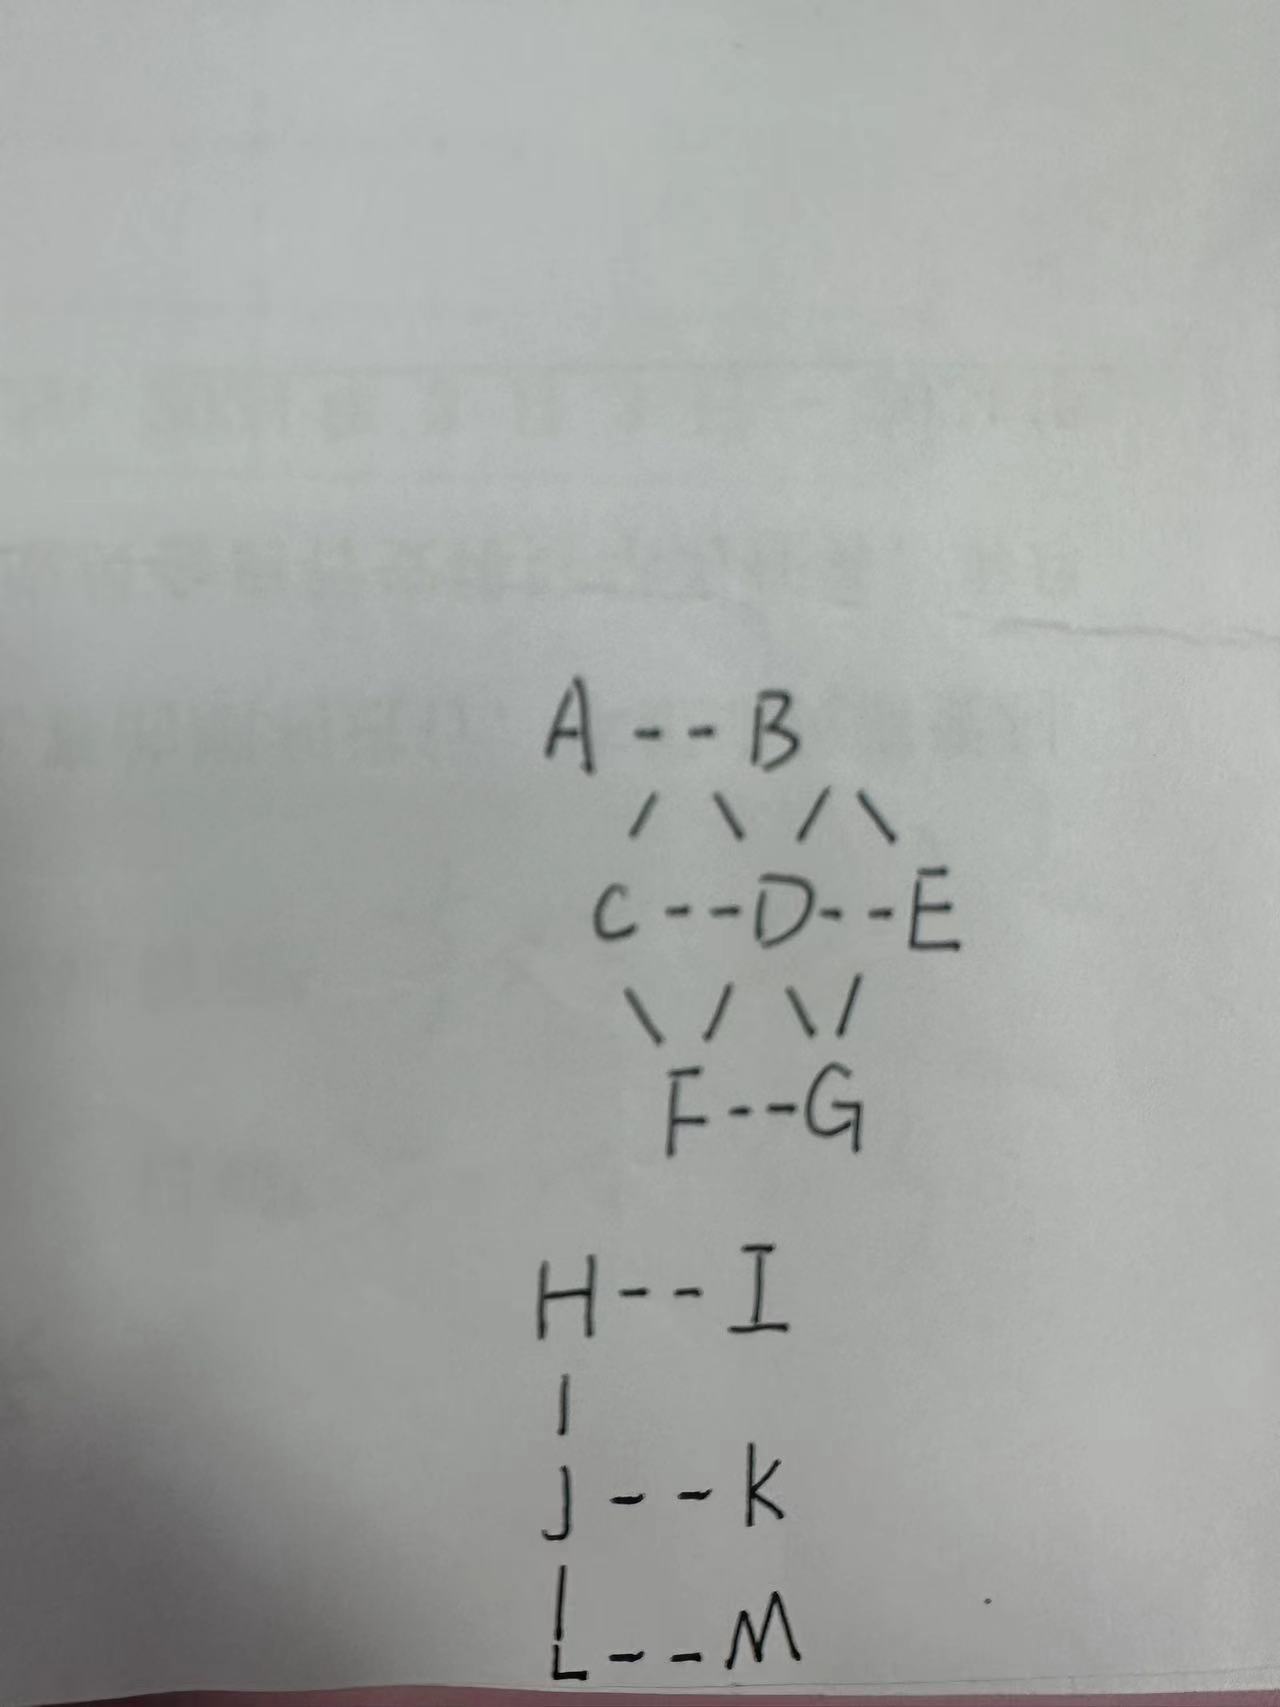 A -- B
/ \ / \
C -- D -- E
\ / \ /
F -- G
H -- I
|
J -- K
|
L -- M